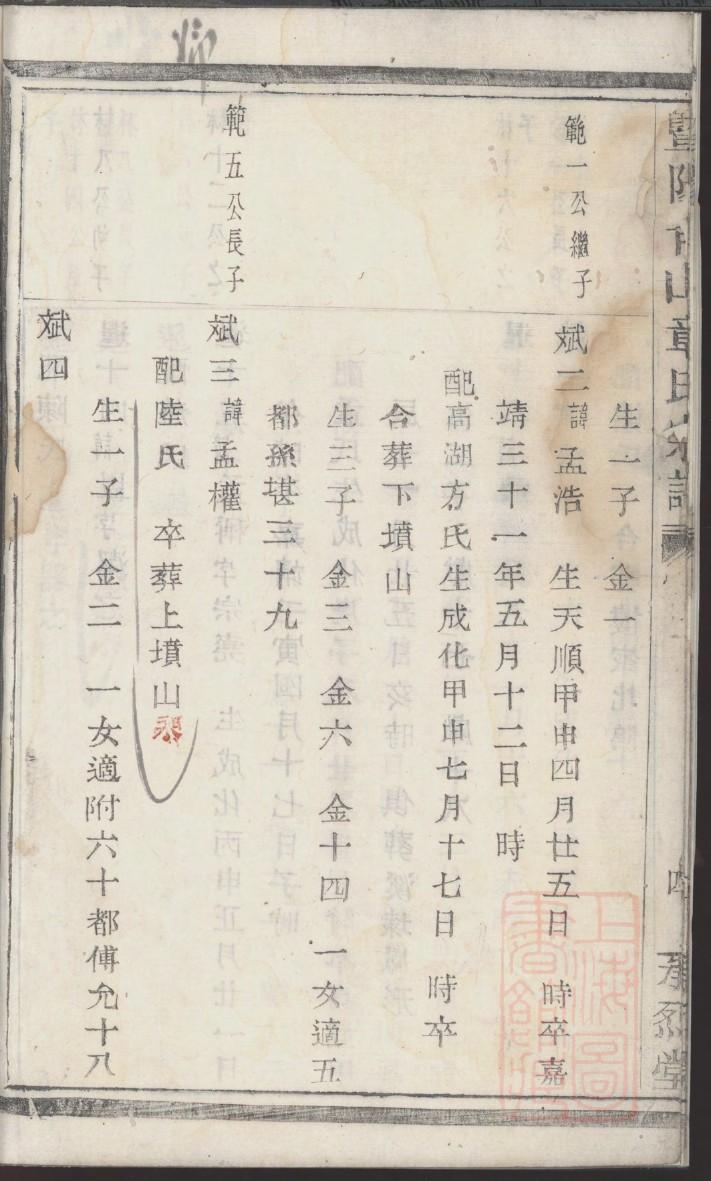 生一子 金一
範一公繼子
斌二諱孟浩 生天順甲申四月廿五日 時卒嘉
靖三十一年五月十二日 時
配高湖方氏生成化甲申七月十七日 時卒
合葬下墳山
生三子 金三 金六 金十四 一女適五
都孫堪三十九
範五公長子
斌三諱孟權
配陸氏 卒葬上墳山
生一子 金二 一女適附六十都傅允十八
斌四
上海圖書館藏